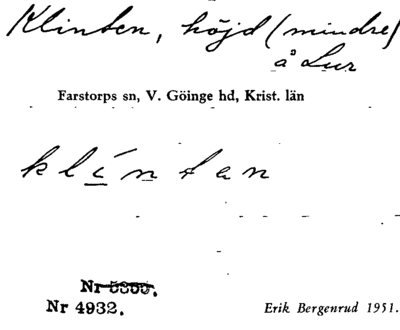 Klinten, höjd (mindre)
å Lur
Farstorps sn, V. Göinge hd, Krist. län
klíntan
Nr 5355.
Nr 4932.
Erik Bergenrud 1951.